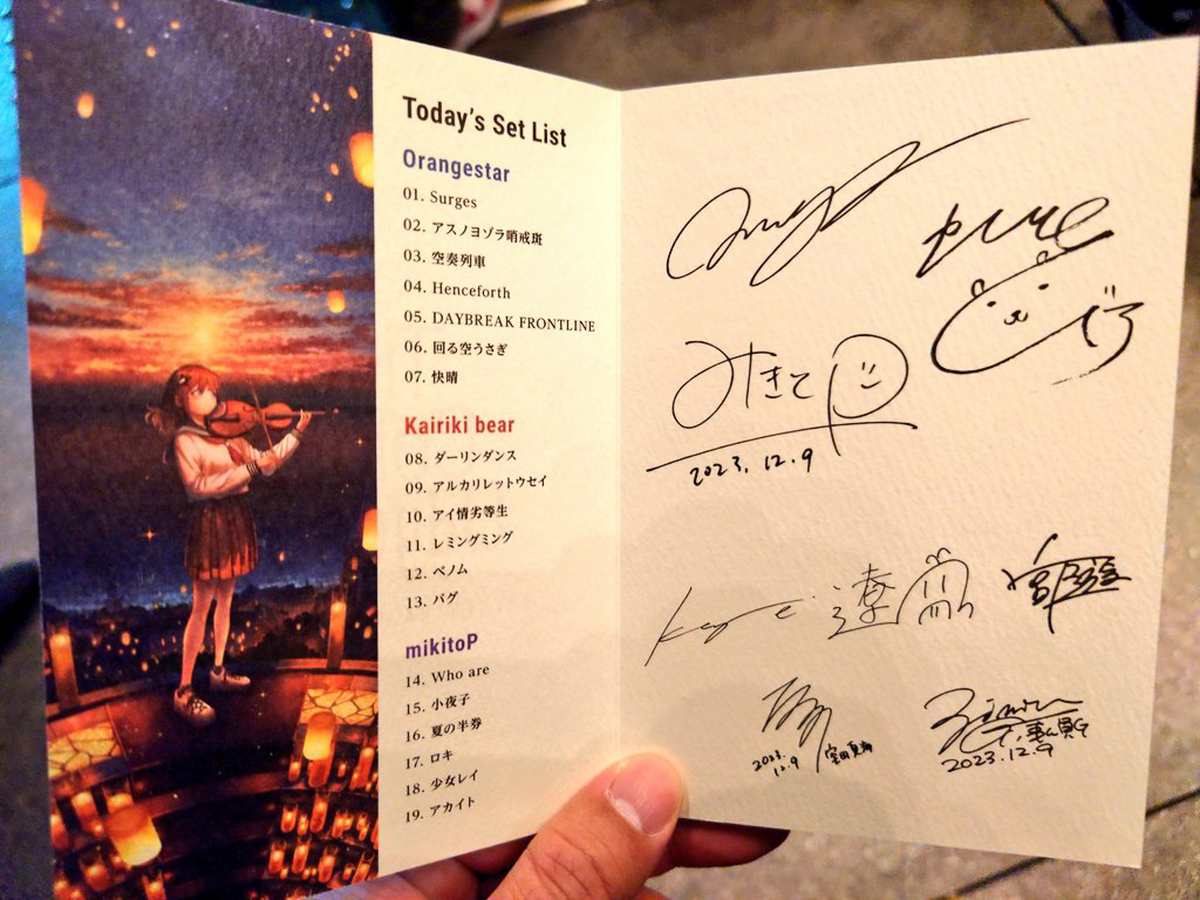 Today's Set List
Orangestar
01. Surges
02. アスノヨゾラ哨戒班
03. 空奏列車
04. Henceforth
05. DAYBREAK FRONTLINE
06. 回る空うさぎ
07. 快晴
Kairiki bear
08. ダーリンダンス
09. アルカリレットウセイ
10. アイ情劣等生
11. レミングミング
12. ベノム
13. バグ
mikitoP
14. Who are
15. 小夜子
16. 夏の半券
17. ロキ
18. 少女レイ
19. アカイト
みきとP
2023. 12. 9
2023.
12.9
2023.12.9